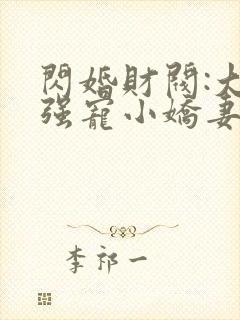 閃婚財閥:大
强寵小嬌妻
李祁一